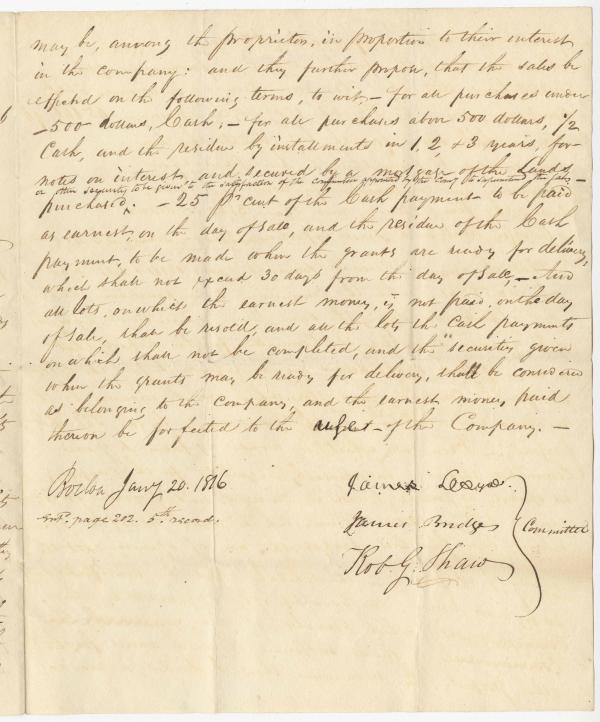 may be, among the proprietors, in proportion to their interest
in the company: and they further propose, that the sales be
effected on the following terms, to wit, – for all purchases under
–500 dollars, Cash; – for all purchases above 500 dollars, 1/2
Cash, and the residue by installments in 1, 2, & 3 years, for
notes on interest, and secured by a mortgage of the Lands
or other security to be given to the satisfaction of the committee appointed by the Comp. to superintend the sales
purchased. – 25 pr Cent of the Cash payment to be paid
as earnest, on the day of sale, and the residue of the Cash
payment, to be made when the grants are ready for delivery,
which shall not exceed 30 days from the day of sale, – And
all lots, on which the earnest money, is not paid, on the day
of sale, shall be resold, and all the lots the Cash payments
on which shall not be completed, and the securities given
when the grants may be ready for delivery, shall be considered
as belonging to the Company, and the earnest money paid
thereon be forfeited to the use of the Company. –
Boston Jany 20. 1816
Entd. page 202. 5th record.
James
James Bridge
Rob G. Shaw
Committee